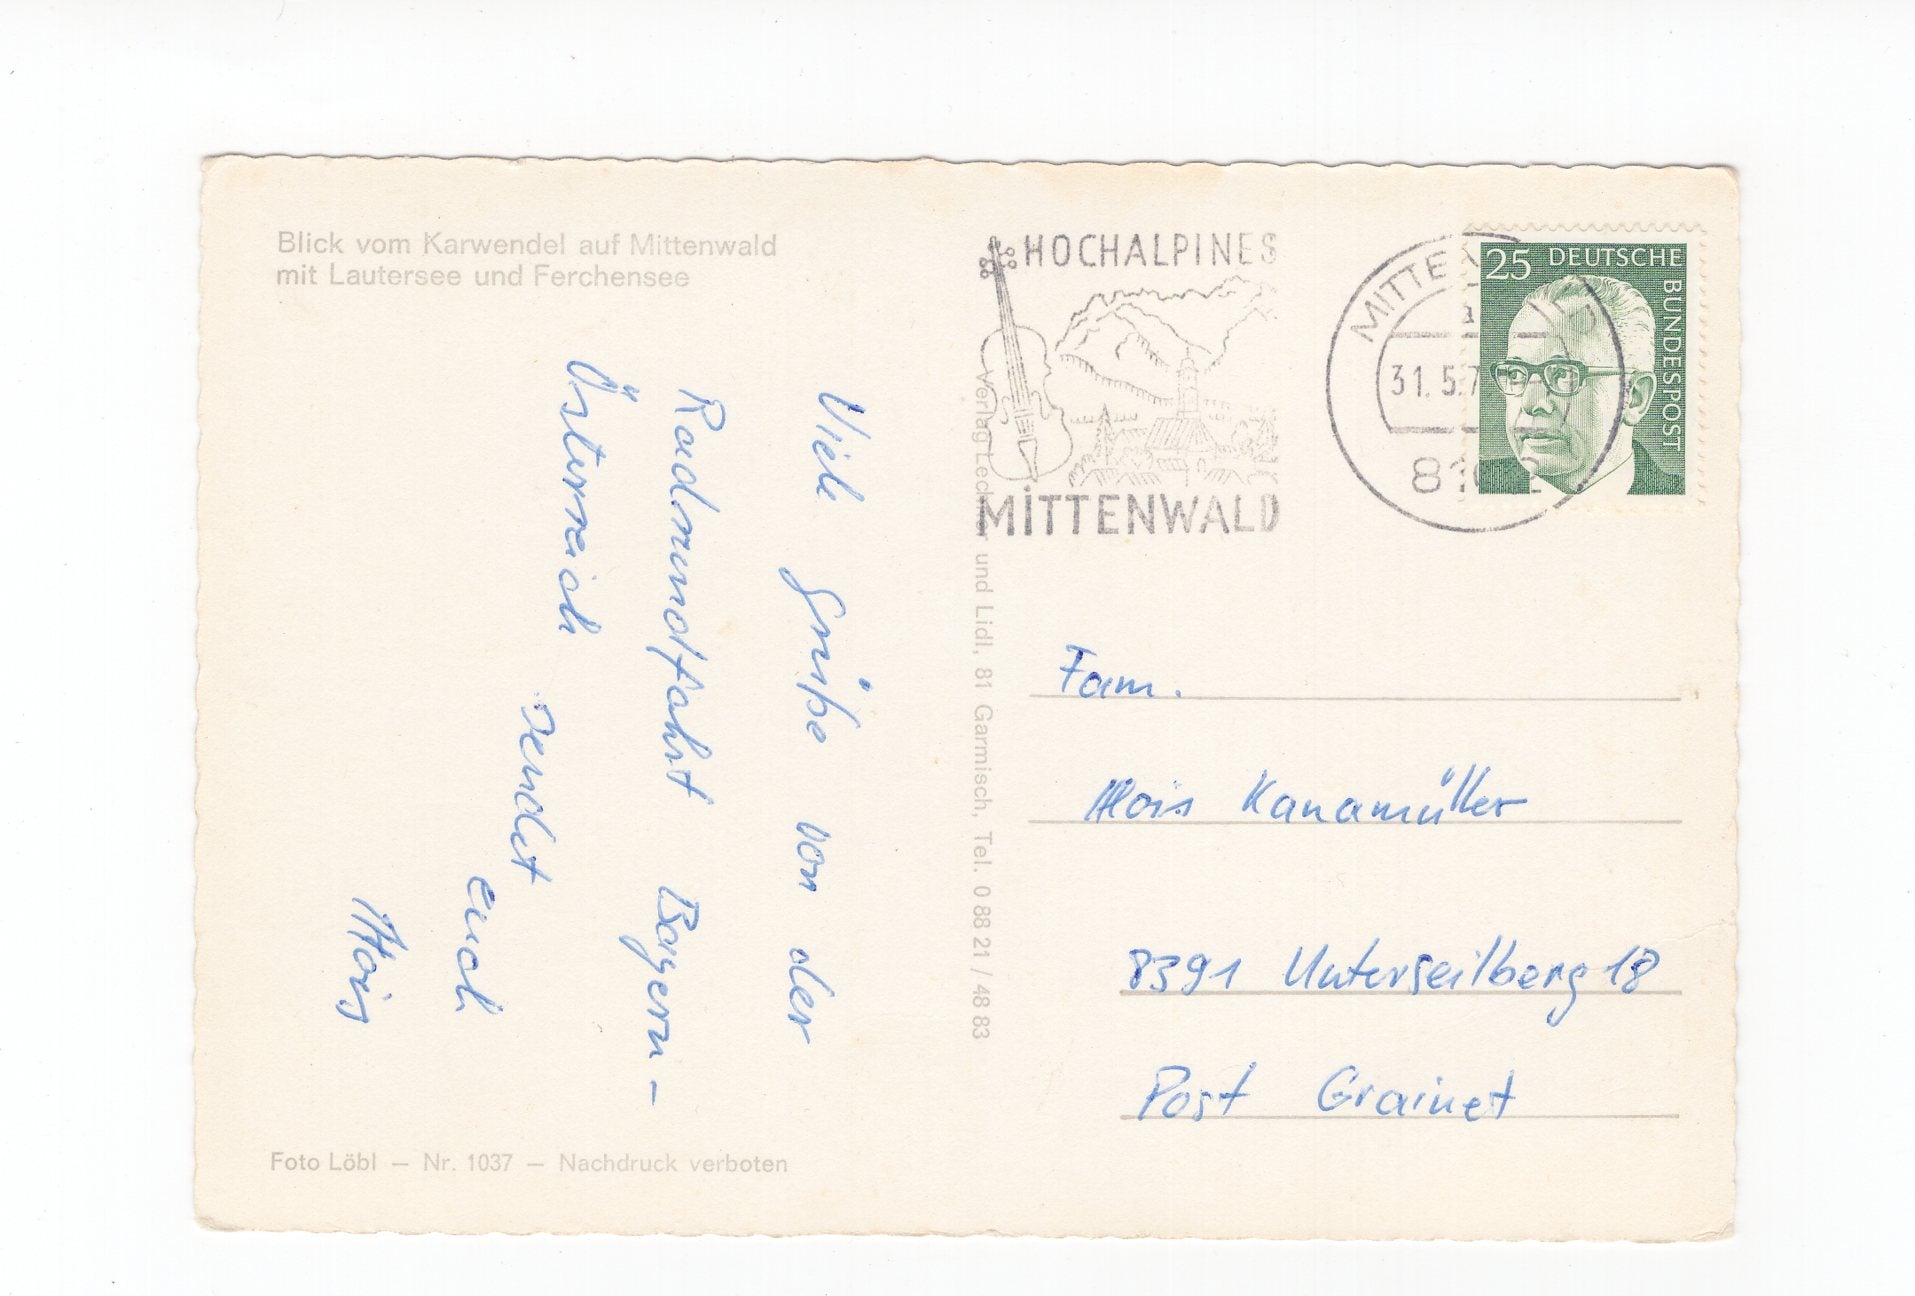 Blick vom Karwendel auf Mittenwald
mit Lautersee und Ferchensee
Viele Grüße von der
Radrundfahrt Bayern –
Österreich
sendet
euch
Alois
Foto Löbl — Nr. 1037 — Nachdruck verboten
Verlag Lechner und Lidl, 81 Garmisch, Tel. 0 88 21 / 48 83
HOCHALPINES
MITTENWALD
31.5.7
25 DEUTSCHE BUNDESPOST
Fam.
Alois Kanamüller
8391 Unterseilberg 18
Post Grainet